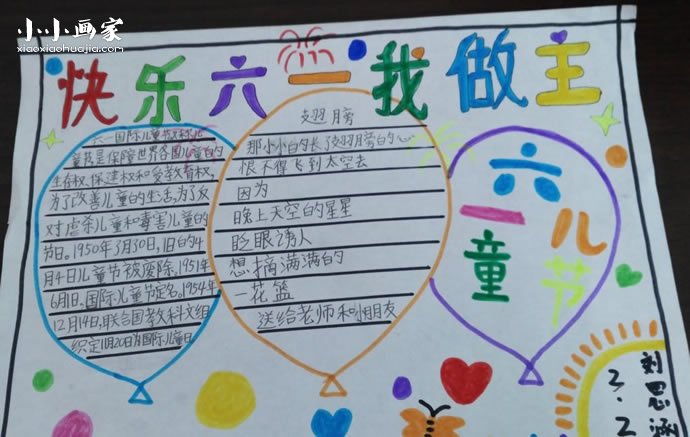 小小画家
xiaoxiaohuajia.com
快乐六一我做主
六一国际儿童节又称儿
童节是保障世界各国儿童的
生存权、保健权和受教育权,
为了改善儿童的生活,为了反
对虐杀儿童和毒害儿童的
节日。1950年3月30日,旧的4
月4日儿童节被废除。1951年
6月1日。国际儿童节定名。1954年
12月14日,联合国教科文组
织定11月20日为国际儿童日
翅膀
那小小的长了翅膀的心
恨不得飞到太空去
因为
晚上天空的星星
眨眼诱人
想摘满满的
一花篮
送给老师和小朋友
六一
儿童节
刘思涵
2.2